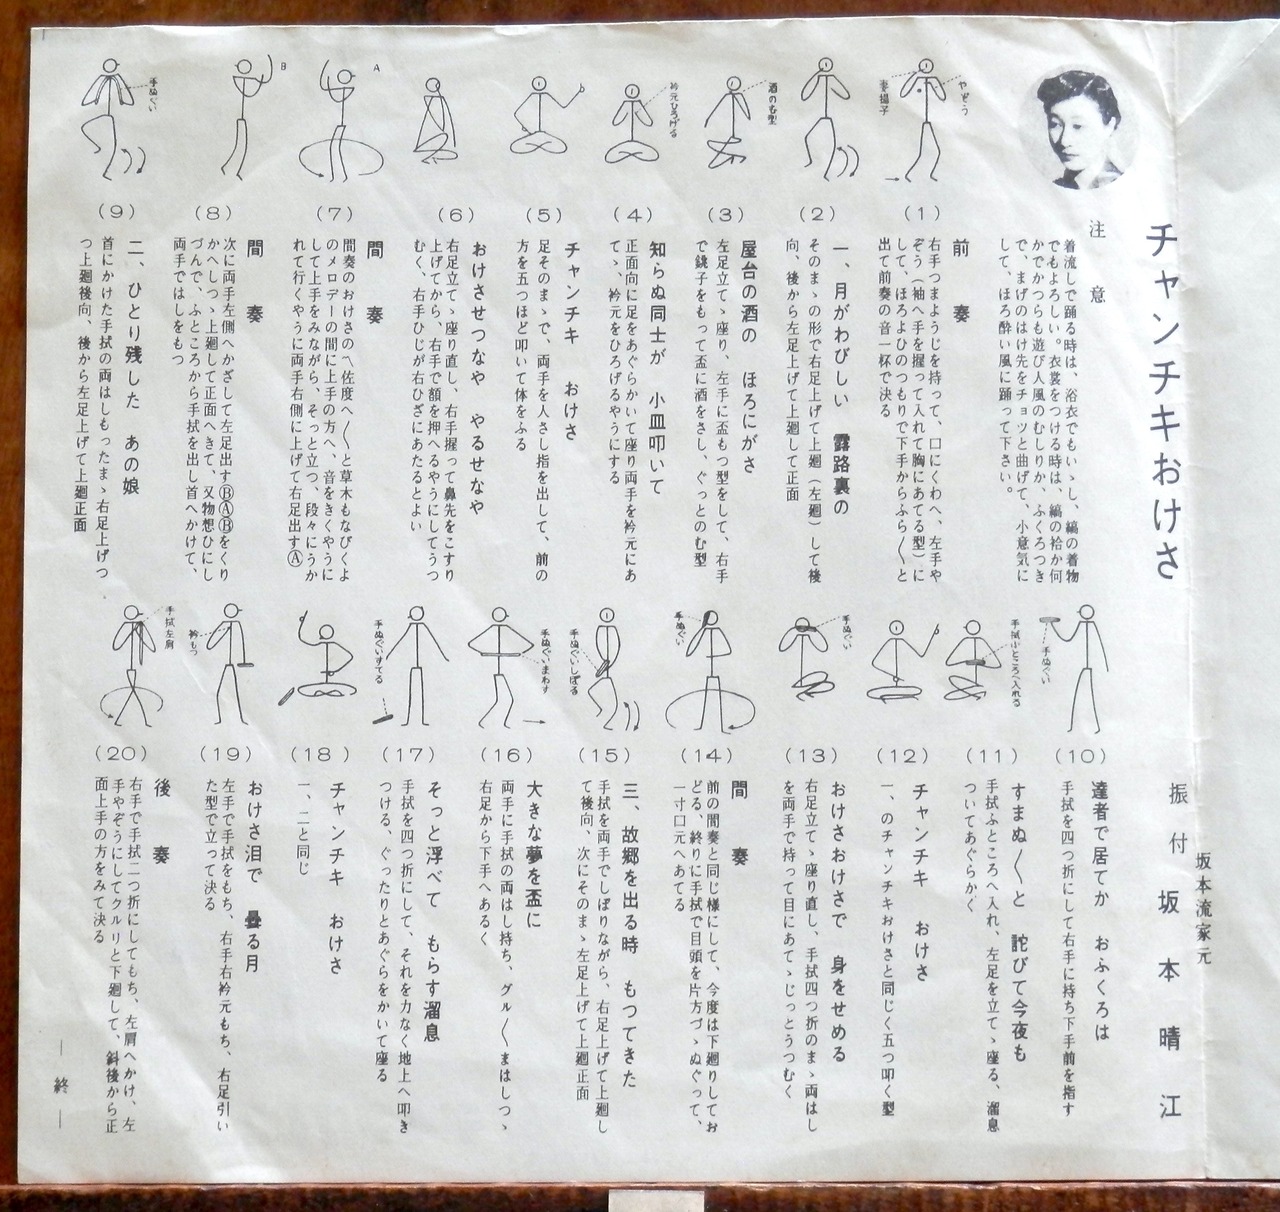 チャンチキおけさ
坂本流家元
振付 坂本晴江
注意
着流しで踊る時は、浴衣でもいゝし、縞の着物
でもよろしい。衣裳をつける時は、縞の袷か何
かでかつらも遊び人風のむしりか、ふくろつき
で、まげのはけ先をチョッと曲げて、小意気に
して、ほろ酔い風に踊って下さい。
やぞう
妻揚子
(1)
前奏
右手つまようじを持って、口にくわへ、左手や
ぞう(袖へ手を握って入れて胸にあてる型)に
して、ほろよひのつもりで下手からふら〳〵と
出て前奏の音一杯で決る
(2)
一、月がわびしい 露路裏の
そのまゝの形で右足上げて上廻(左廻)して後
向、後から左足上げて上廻して正面
酒のむ型
(3)
屋台の酒の ほろにがさ
左足立てゝ座り、左手に盃もつ型をして、右手
で銚子をもって盃に酒をさし、ぐっとのむ型
衿元ひろげる
(4)
知らぬ同士が 小皿叩いて
正面向に足をあぐらかいて座り両手を衿元にあ
てゝ、衿元をひろげるやうにする
(5)
チャンチキ おけさ
足そのまゝで、両手を人さし指を出して、前の
方を五つほど叩いて体をふる
(6)
おけさせつなや やるせなや
右足立てゝ座り直し、右手握って鼻先をこすり
上げてから、右手で額を押へるやうにしてうつ
むく、右手ひじが右ひざにあたるとよい
A
(7)
間奏
間奏のおけさの〽佐度へ〳〵と草木もなびくよ
のメロデーの間に上手の方へ、音をきくやうに
して上手をみながら、そっと立つ、段々にうか
れて行くやうに両手右側に上げて右足出すⒶ
B
(8)
間奏
次に両手左側へかざして左足出すⒷⒶⒷをくり
かへしつゝ上廻して正面へきて、又物想ひにし
づんで、ふところから手拭を出し首へかけて、
両手ではしをもつ
手ぬぐい
(9)
二、ひとり残した あの娘
首にかけた手拭の両はしもったまゝ右足上げつ
つ上廻後向、後から左足上げて上廻正面
手ぬぐい
(10)
達者で居てか おふくろは
手拭を四つ折にして右手に持ち下手前を指す
手拭ふところへ入れる
(11)
すまぬ〳〵と 詫びて今夜も
手拭ふところへ入れ、左足を立てゝ座る、溜息
ついてあぐらかく
(12)
チャンチキ おけさ
一、のチャンチキおけさと同じく五つ叩く型
手ぬぐい
(13)
おけさおけさで 身をせめる
右足立てゝ座り直し、手拭四つ折のまゝ両はし
を両手で持って目にあてゝじっとうつむく
手ぬぐい
(14)
間奏
前の間奏と同じ様にして、今度は下廻りしてお
どる、終りに手拭で目頭を片方づゝぬぐって、
一寸口元へあてる
手ぬぐいしぼる
(15)
三、故郷を出る時 もつてきた
手拭を両手でしぼりながら、右足上げて上廻し
て後向、次にそのまゝ左足上げて上廻正面
手ぬぐいまわす
(16)
大きな夢を盃に
両手に手拭の両はし持ち、グル〳〵まはしつゝ
右足から下手へあるく
手ぬぐいすてる
(17)
そっと浮べて もらす溜息
手拭を四つ折にして、それを力なく地上へ叩き
つける、ぐったりとあぐらをかいて座る
(18)
チャンチキ おけさ
一、二と同じ
衿もつ
(19)
おけさ泪で 曇る月
左手で手拭をもち、右手右衿元もち、右足引い
た型で立って決る
手拭左肩
(20)
後奏
右手で手拭二つ折にしてもち、左肩へかけ、左
手やぞうにしてクルリと下廻して、斜後から正
面上手の方をみて決る
―終―